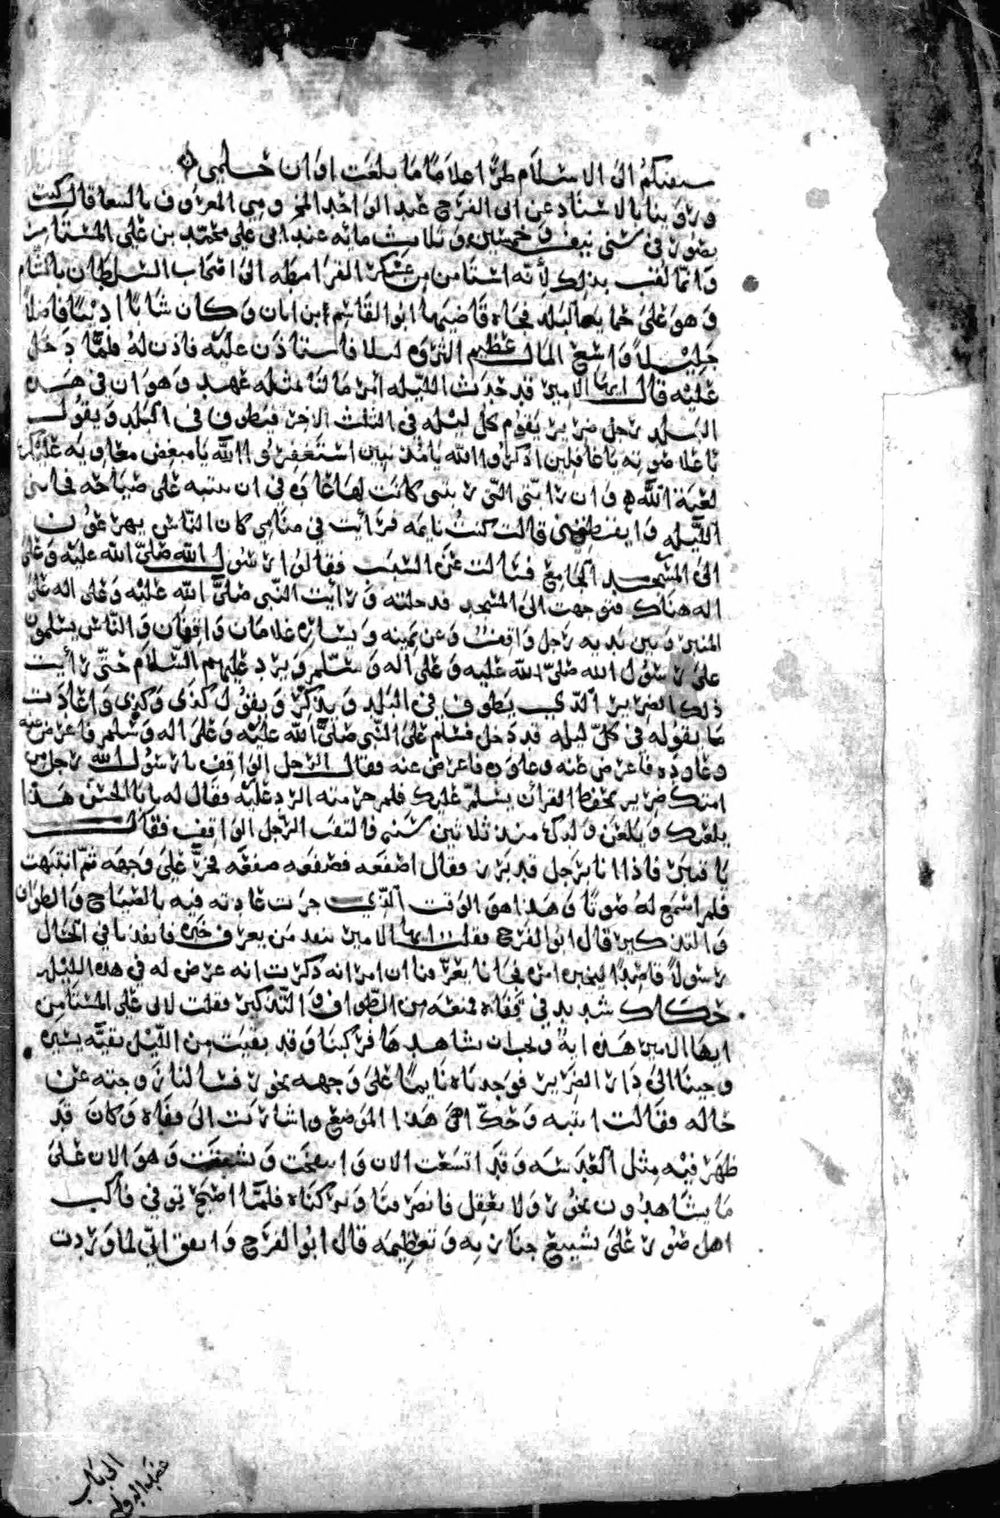 سبقتكم الى الاسلام طرا غلاما ما بلغت اوان حلمي
وروينا بالاسناد عن ابي الفرج عبد الواحد المخزومي المعروف بالببغا قال كنت
بصور في سني نيف وخمسين وثلاث مائه عند ابي علي محمد بن علي المستامن
وانما لقب بذلك لأنه استامن من عسكر القرامطه الى اصحاب السلطان بالشام
وهو على حمايه البلد فجاه قاضيها ابو القاسم بن ابان وكان شابا اديبا فاضلا
جليلا واسع المال عظيم الثروه ليلا فاستاذن عليه فاذن له فلما دخل
عليه قال ايها الامير قد حدث الليله امر ما لنا بمثله عهد وهو ان في هذه
البلد رجل ضرير يقوم كل ليله في الثلث الاخر فيطوف في البلد ويقول
باعلا صوته يا غافلين اذكروا الله يا مذنبين استغفروا الله يا مبغض معاويه عليك
لعنة الله وان رابتي التي ربتني كانت لها عاده في ان تنتبه على صياحه فجاتني
الليله وايقظتني وقالت كنت نايمه فرأيت في منامي كان الناس يهرعون
الى المسجد الجامع فسالت عن السبب فقالوا رسول الله صلى الله عليه وعلى
اله هناك فتوجهت الى المسجد فدخلته ورأيت النبي صلى الله عليه وعلى اله على
المنبر وبين يديه رجل واقف وعن يمينه ويساره غلامان واقفان والناس يسلمون
على رسول الله صلى الله عليه وعلى اله وسلم ويرد عليهم السلام حتى رأيت
ذلك الضرير الذي يطوف في البلد ويذكر ويقول كذى وكذى واعادت
ما يقوله في كل ليله قد دخل فسلم على النبي صلى الله عليه وعلى اله وسلم فاعرض عنه
وعاوده فاعرض عنه وعاوده فاعرض عنه فقال الرجل الواقف يا رسول الله رجل من
امتك ضرير يحفظ القران يسلم عليك فلم حرمته الرد عليه فقال له يا با الحسن هذا
يلعنك ويلعن ولدك منذ ثلاثين سنه فالتفت الرجل الواقف فقال
يا قنبر فاذا انا برجل قد برز فقال اصفعه فصفعه صفعه فخر على وجهه ثم انتبهت
فلم اسمع له صوتا وهذا هو الوقت الذي جرت عادته فيه بالصياح والطواف
والتذكير قال ابو الفرج فقلت ايها الامير تنفذ من يعرف خبره فانفذنا في الحال
رسولا قاصدا ليخبر امره فجانا يعرفنا ان امراته ذكرت انه عرض له في هذه الليله
حكاك شديد في قفاه فمنعه من الطواف والتذكير فقلت لابي علي المستامن
ايها الامير هذه ايه ونحب ان نشاهدها فركبنا وقد بقيت من الليل بقيه يسيره
وجينا الى دار الضرير فوجدناه نايما على وجهه يخور فسالنا زوجته عن
حاله فقالت انتبه وحك هذا الموضع واشارت الى قفاه وكان قد
ظهر فيه مثل العدسه وقد اتسعت الان وانتفخت وتشققت وهو الان على
ما تشاهدون يخور ولا يعقل فانصرفنا وتركناه فلما اصبح توفي فأكب
اهل صور على تشييع جنازته وتعظيمه قال ابو الفرج واتفق اني لما وردت
الى باب
عضد الدوله